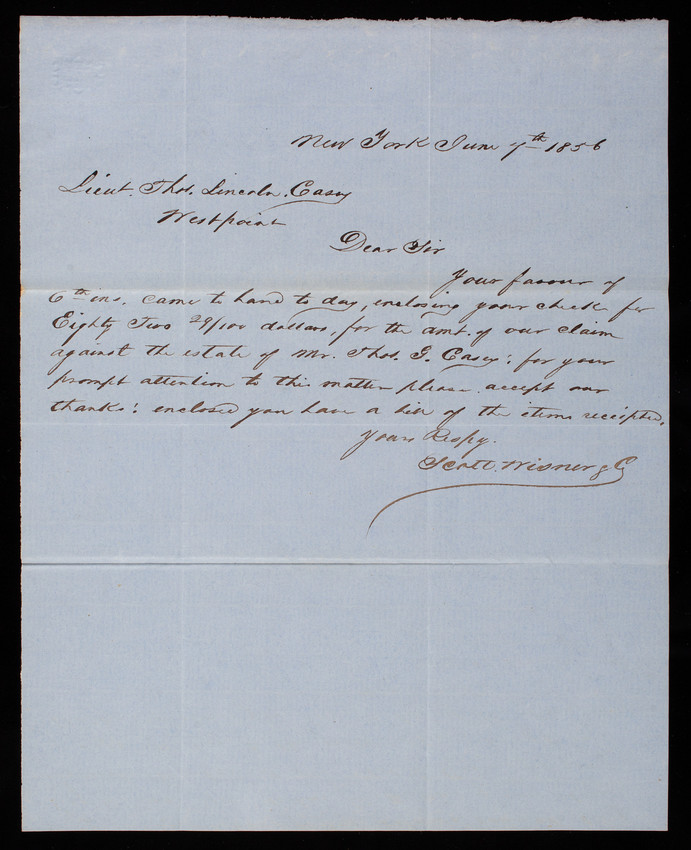 New York June 7th 1856
Lieut. Thos. Lincoln Casey
Westpoint
Dear Sir
Your favour of
6th ins. came to hand to day, enclosing your check for
Eighty Two 29/100 dollars, for the amt. of our claim
against the estate of Mr. Thos. G. Casey; for your
prompt attention to this matter please accept our
thanks: enclosed you have a bill of the items receipted,
Yours Respy.
Scott. Wisner & Co